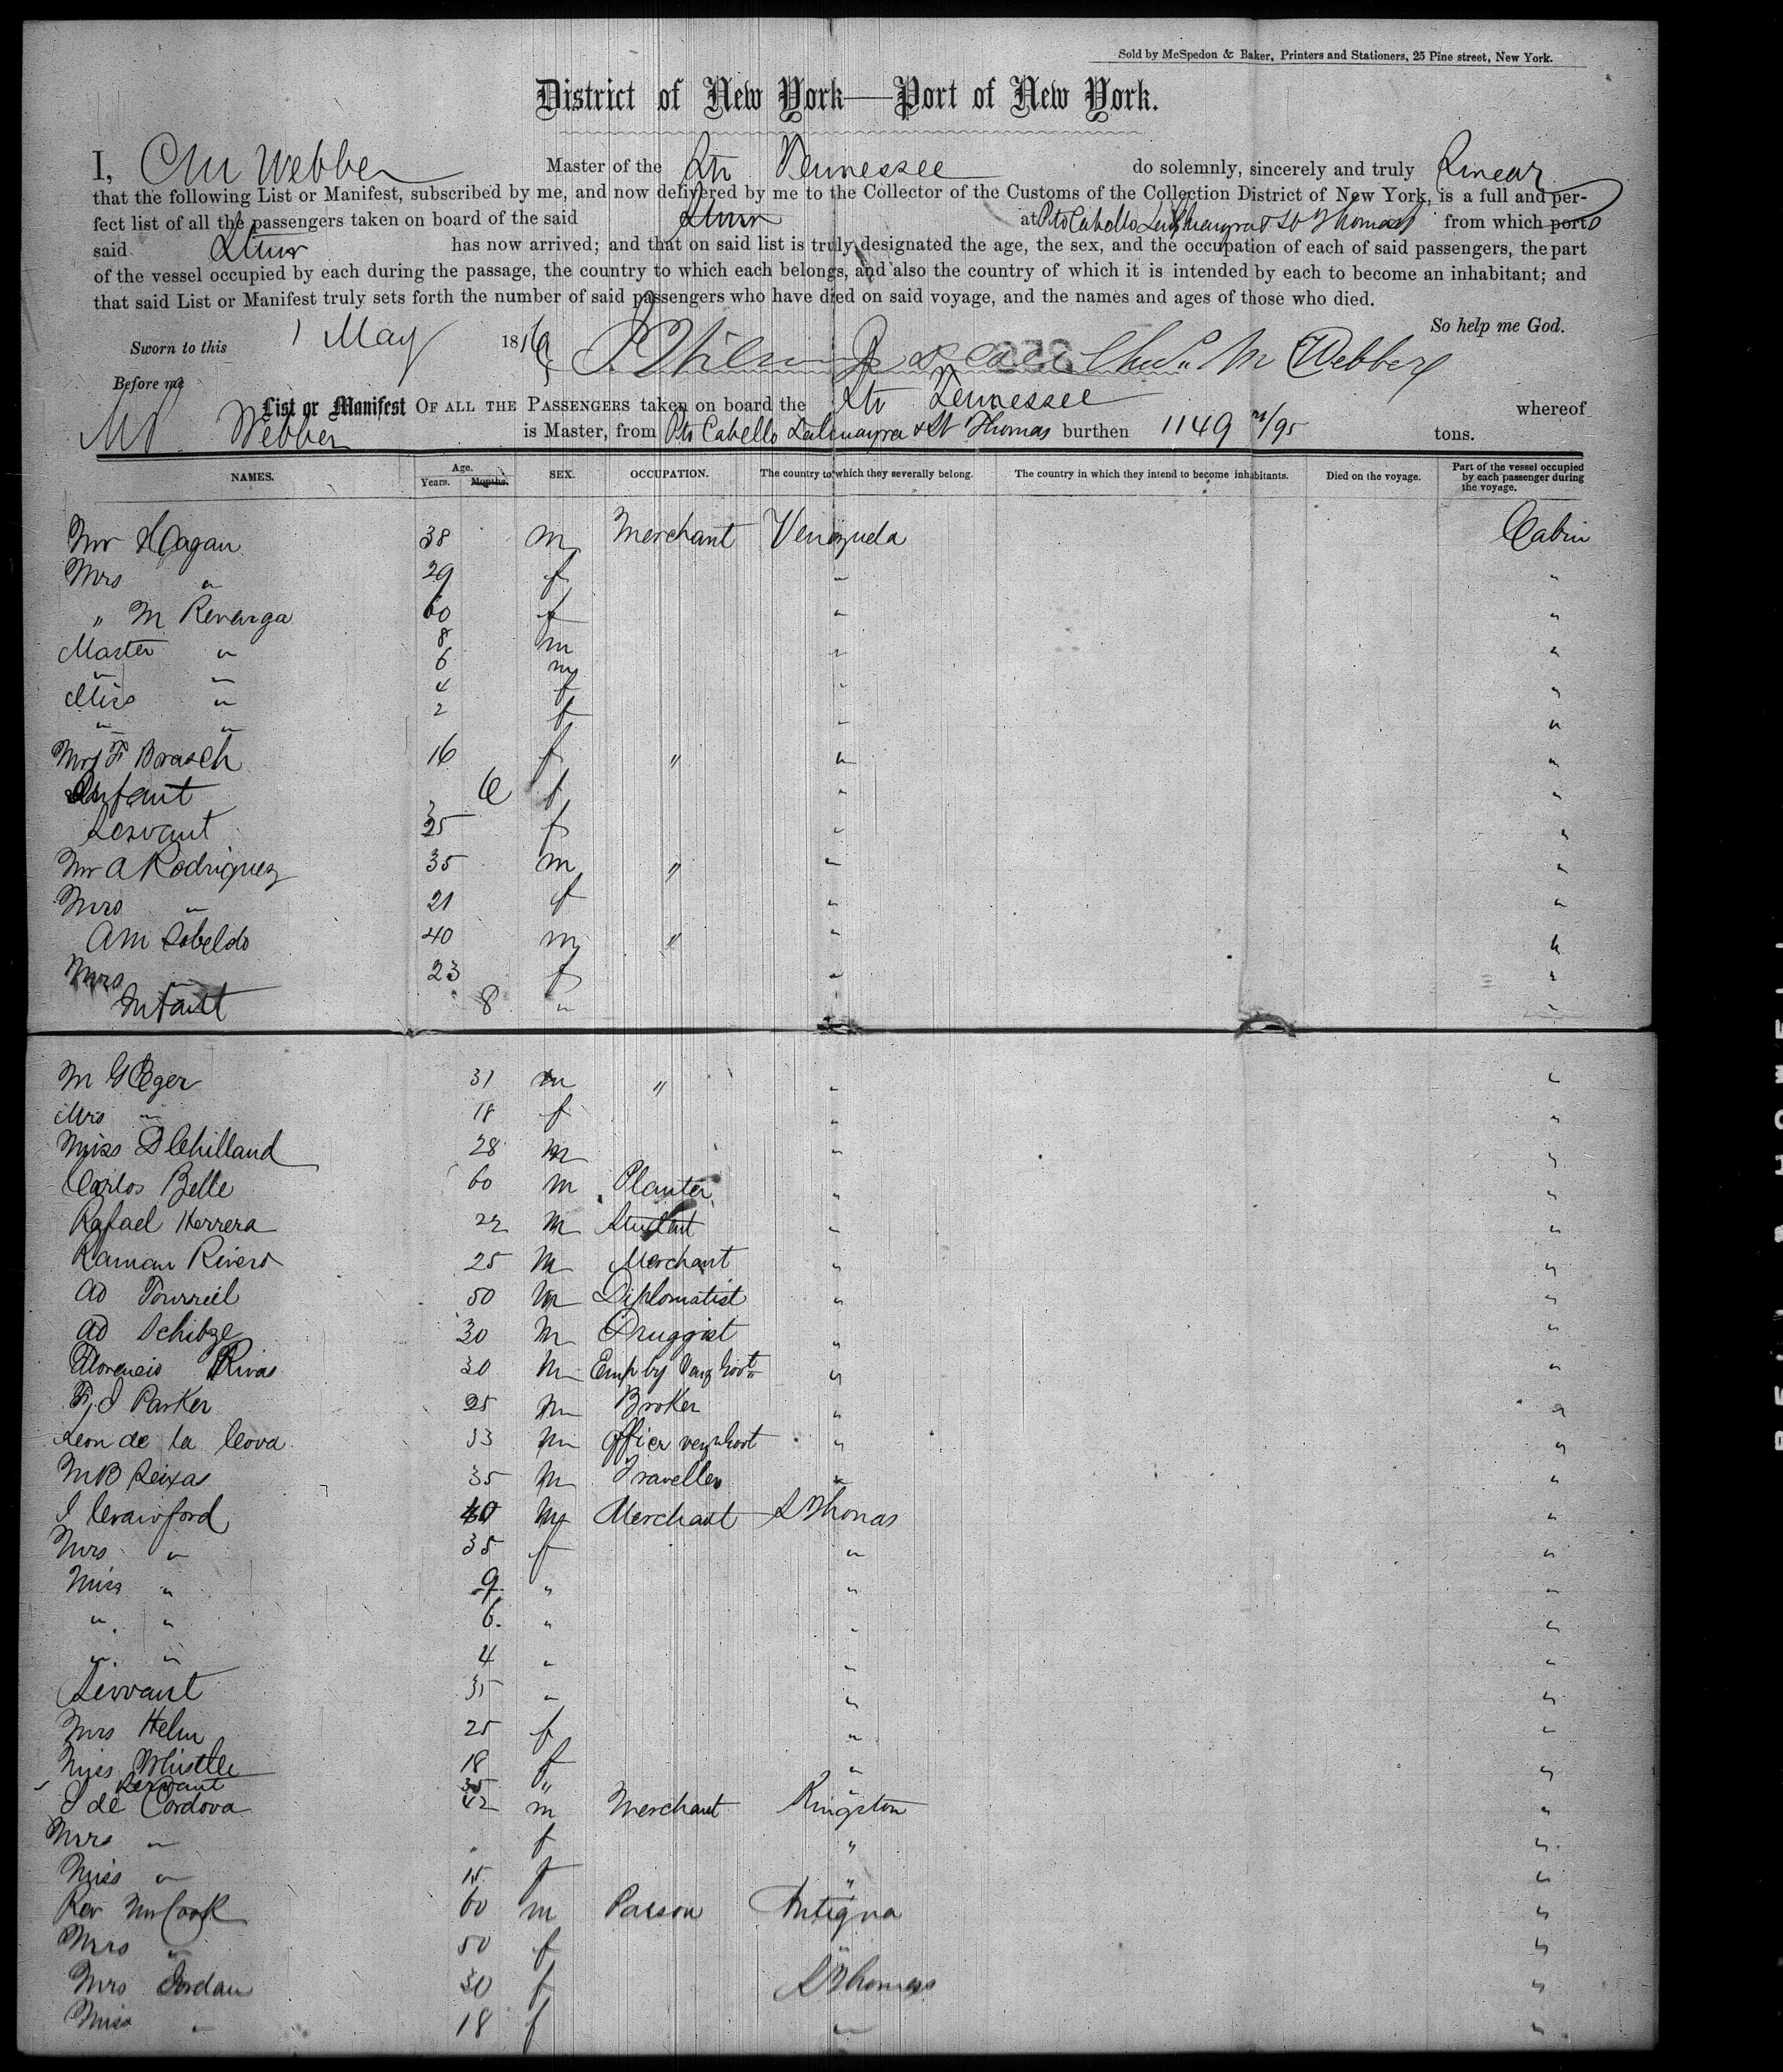 Sold by McSpedon & Baker, Printers and Stationers, 25 Pine street, New York.
District of New York—Port of New York.
I, Webber Master of the Str Tennessee do solemnly, sincerely and truly swear
that the following List or Manifest, subscribed by me, and now delivered by me to the Collector of the Customs of the Collection District of New York, is a full and per-
fect list of all the passengers taken on board of the said at Pto Cabello Laguayra & St Thomas from which port
said has now arrived; and that on said list is truly designated the age, the sex, and the occupation of each of said passengers, the part
of the vessel occupied by each during the passage, the country to which each belongs, and also the country of which it is intended by each to become an inhabitant; and
that said List or Manifest truly sets forth the number of said passengers who have died on said voyage, and the names and ages of those who died.
So help me God.
Sworn to this 1 May 18 Chas M Webber
Before me
List or Manifest OF ALL THE PASSENGERS taken on board the Str Tennessee whereof
Webber is Master, from Pto Cabello Laguayra & St Thomas burthen 1149 /95 tons.
NAMES. Age. Years. Months. SEX. OCCUPATION. The country to which they severally belong. The country in which they intend to become inhabitants. Died on the voyage. Part of the vessel occupied by each passenger during the voyage.
Mr Hagan 38 m Merchant Venezuela Cabin
Mrs " 29 f " "
" M Revenga 60 f " "
Master " 8 m " "
" " 6 m
Miss " 4 f " "
" " 2 f " "
Mrs F Brasch 16 f " " "
Infant 6 f " "
Servant 25 f " "
Mr A Rodriguez 35 m " " "
Mrs " 21 f " "
A M Sobeldo 40 m " " "
Mrs " 23 f " "
Infant 8 " "
M G Eger 31 m " " "
Mrs " 18 f " "
Miss D Chilland 28 m " "
Carlos Belle 60 m Planter " "
Rafael Herrera 22 m Student " "
Ramon Rivero 25 m Merchant " "
Ad Tourreil 50 m Diplomatist " "
Ad Schibze 30 m Druggist " "
Florencio Rivas 30 m Emp by Venz Govt " "
F J Parker 25 m Broker " "
Leon de la Cova 33 m Officer Venz Govt " "
M B Seixas 35 m Traveller " "
J Crawford 40 m Merchant St Thomas "
Mrs " 35 f " "
Miss " 9 " " "
" " 6 " " "
" " 4 " " "
Servant 35 " " "
Mrs Helm 25 f " "
Miss 18 f " "
Servant 35 " "
J de Cordova 42 m Merchant Kingston "
Mrs " " f " "
Miss " 15 f " "
Rev Mr Cook 60 m Parson Antigua "
Mrs " 50 f " "
Mrs Jordan 30 f St Thomas "
Miss " 18 f " "